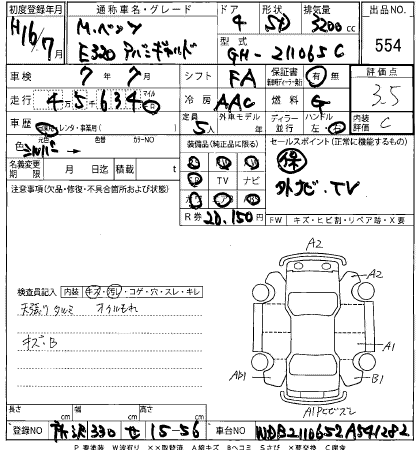 初度登録年月 通称車名・グレード ドア 形状 排気量 出品NO.
H16/7月 M.ベンツ 4 SD 3200cc 554
E320 アバンギャルド 型式 GH-211065C
車検 7年 7月 シフト FA 保証書 有 無 評価点
走行 4万5千634 マイル 冷房 AAC 燃料 G 3.5
車歴 レンタ・事業用 定員 5人 外車モデル 年 ディーラー 並行 ハンドル 左 右 内装評価 C
色 元色 シルバー 色替 カラーNO 装備品(純正品に限る) セールスポイント(正常に機能するもの)
名義変更期限 月 日迄 積載 t SR TV ナビ 保
注意事項(欠品・修復・不具合箇所および状態) 外ナビ.TV
R券 20,150円 FW キズ・ヒビ割・リペア跡・X要
検査員記入 内装 キズ・汚レ・コゲ・穴・スレ・キレ
天張りタルミ オイルもれ
キズ.B
A2
A2
A1
AB1
B1
長さ cm 幅 cm 高さ cm
登録NO 所沢330 せ 15-56 車台NO WDB2110652A541282